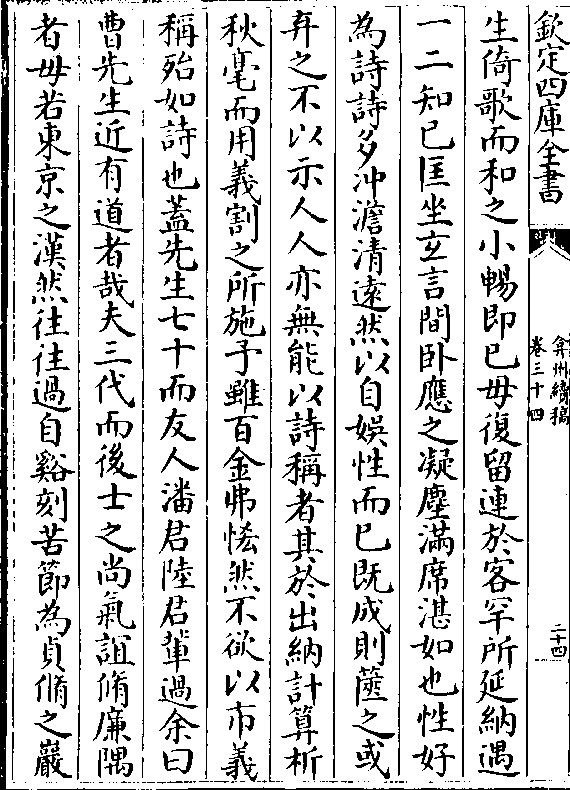 欽定四庫全書
弇州續稿
卷三十四
二十四
生倚歌而和之小暢即已毋復留連於客罕所延納遇
一二知已匡坐玄言間卧應之凝塵滿席湛如也性好
為詩詩多冲澹清遠然以自娛性而已既成則篋之或
弃之不以示人人亦無能以詩稱者其於出納計算析
秋毫而用義割之所施予雖百金弗恡然不欲以市義
稱殆如詩也蓋先生七十而友人潘君陸君輩過余曰
曹先生近有道者哉夫三代而後士之尚氣誼脩廉隅
者毋若東京之漢然往往過自谿刻苦節為貞脩之巖